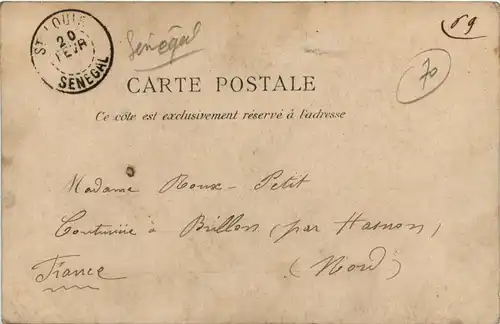 ST LOUIS
20
FEVR
SENEGAL
Sénégal
69
70
CARTE POSTALE
Ce côté est exclusivement réservé à l'adresse
Madame Roux-Petit
Couturière à Brillon (par Hasnon)
(Nord)
France